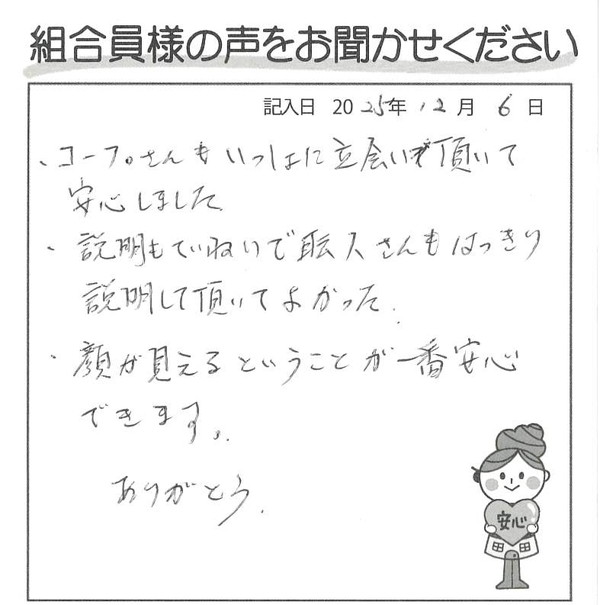 組合員様の声をお聞かせください
記入日 2025年 12月 6日
・コープさんもいっしょに立会いで頂いて
安心しました
・説明もていねいで職人さんもはっきり
説明して頂いてよかった.
・顔が見えるということが一番安心
できます。
ありがとう.
安心